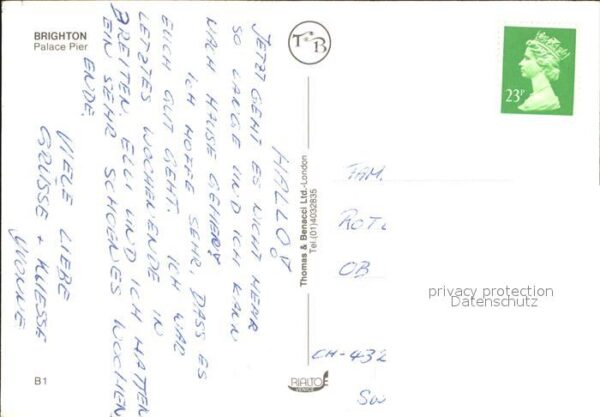 BRIGHTON
Palace Pier
HALLO!
JETZT GEHT ES NICHT MEHR
SO LANGE UND ICH KANN
NACH HAUSE GEHEN!
ICH HOFFE SEHR, DASS ES
EUCH GUT GEHT. ICH WAR
LETZTES WOCHENENDE IN
BREITEN. ELLI UND ICH HATTEN
EIN SEHR SCHOENES WOCHEN
ENDE.
VIELE LIEBE
GRÜSSE + KUESSE
YVONNE
B1
TB
Thomas & Benacci Ltd.-London
Tel.(01)4032835
RIALTO
VENICE
23P
FAM.
OB
CH-432
privacy protection
Datenschutz